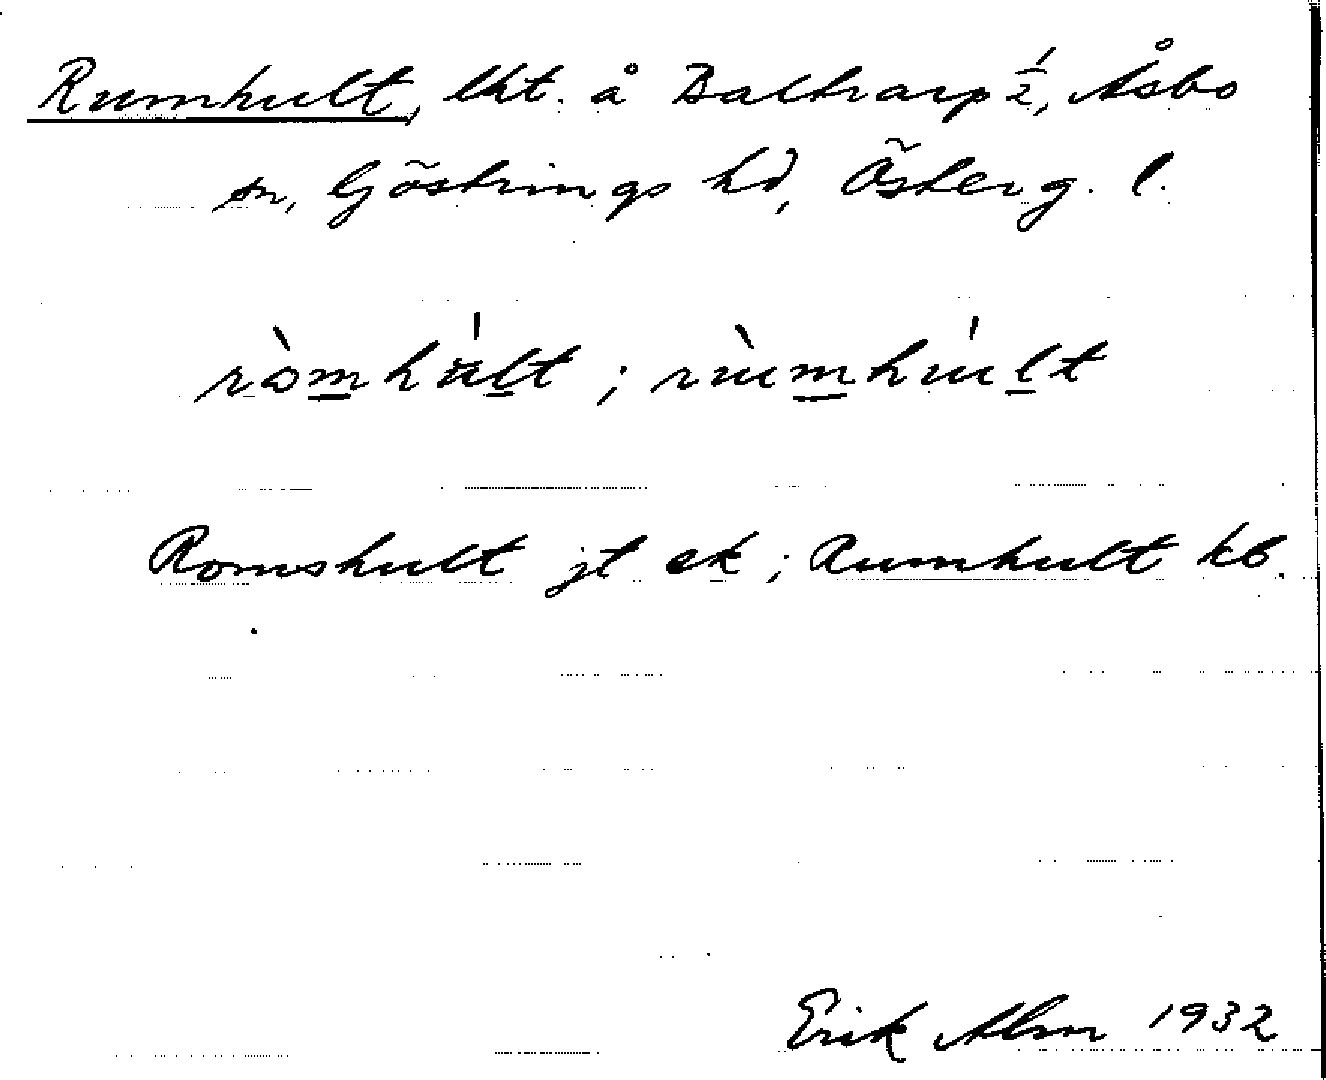 Rumhult, lht. å Daltrarp 1/2, Åsbo
sn, Göstrings hd, Österg. l.
ròmhúlt ; rùmhúlt
Romshult jt ek ; Rumhult kb.
Erik Alm 1932